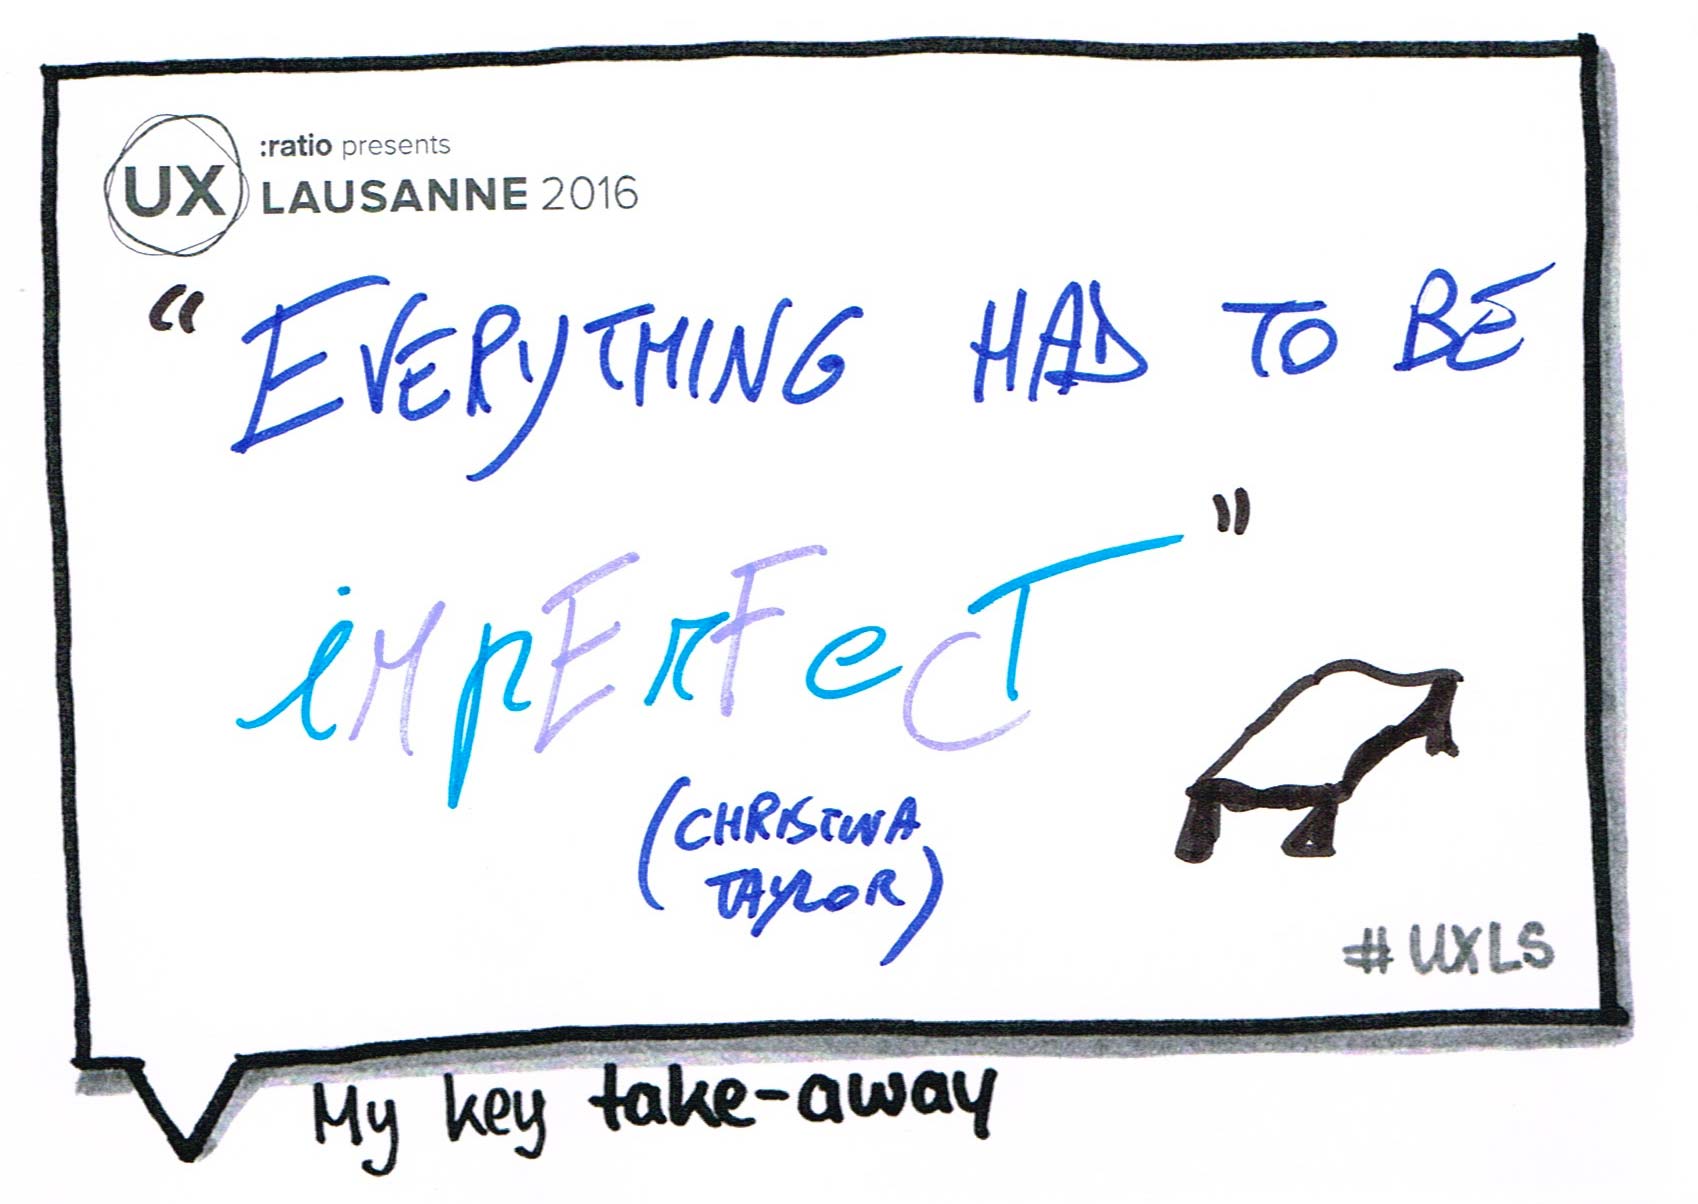 UX
:ratio presents
LAUSANNE 2016
“EVERYTHING HAD TO BE
iMpErFecT”
(CHRISTINA
TAYLOR)
#UXLS
My key take-away